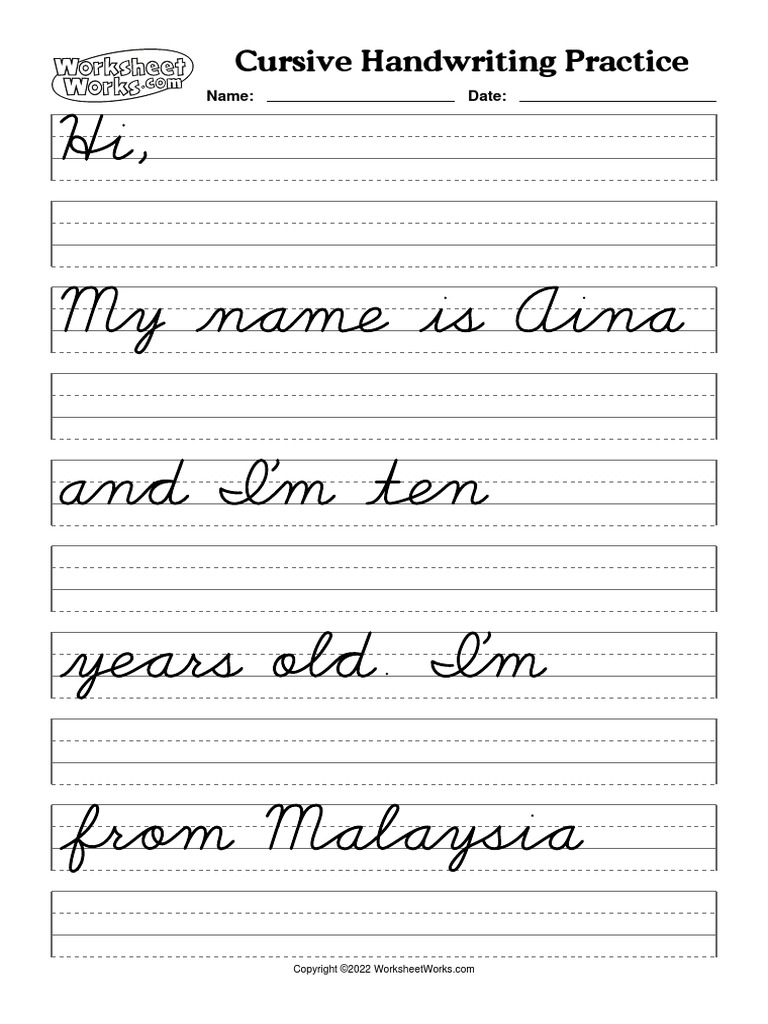 Worksheet Works.com
Cursive Handwriting Practice
Name: Date:
Hi,
My name is Aina
and I'm ten
years old. I'm
from Malaysia
Copyright ©2022 WorksheetWorks.com